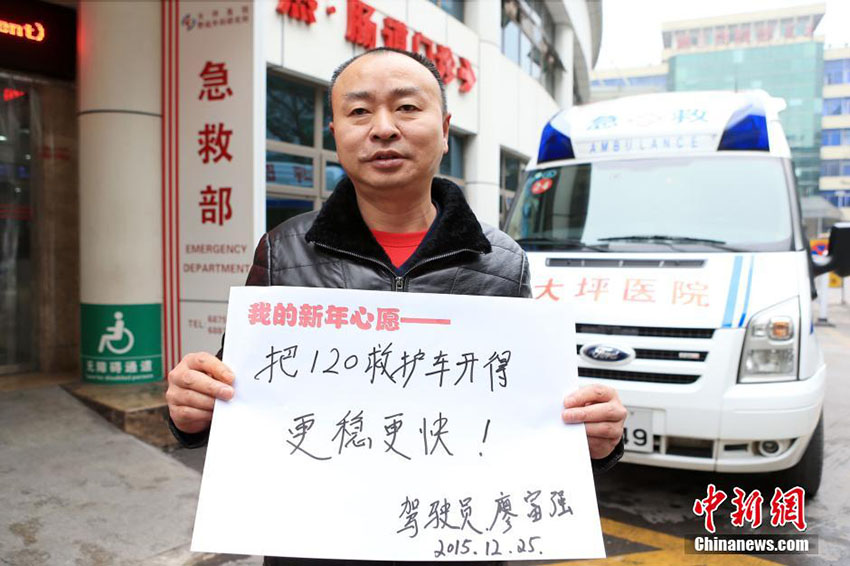 ent)
急救部
EMERGENCY
DEPARTMENT
TEL:
无障碍通道
肠道门诊
急救
AMBULANCE
大坪医院
Ford
49
我的新年心愿——
把120救护车开得
更稳更快！
驾驶员 廖富强
2015.12.25.
中新网
Chinanews.com